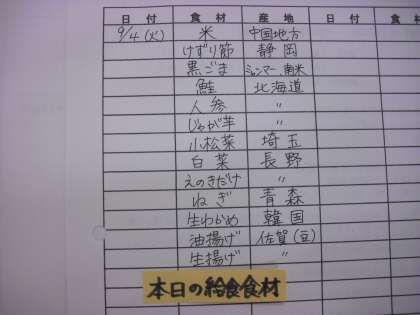 日付 食材 産地 日付 食材
9/4(火) 米 中国地方
けずり節 静岡
黒ごま ミャンマー、南米
鮭 北海道
人参 〃
じゃが芋 〃
小松菜 埼玉
白菜 長野
えのきだけ 〃
ねぎ 青森
生わかめ 韓国
油揚げ 佐賀(豆)
生揚げ 〃
本日の給食食材